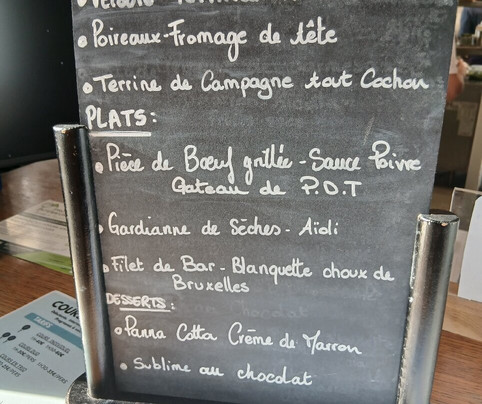 • Velouté
• Poireaux-Fromage de tête
• Terrine de Campagne tout Cochon
PLATS:
• Pièce de Bœuf grillée - Sauce Poivre
Gateau de P.D.T
• Gardianne de Sèches - Aïoli
• Filet de Bar - Blanquette choux de
Bruxelles
DESSERTS:
• Panna Cotta Crème de Marron
• Sublime au chocolat
COUR